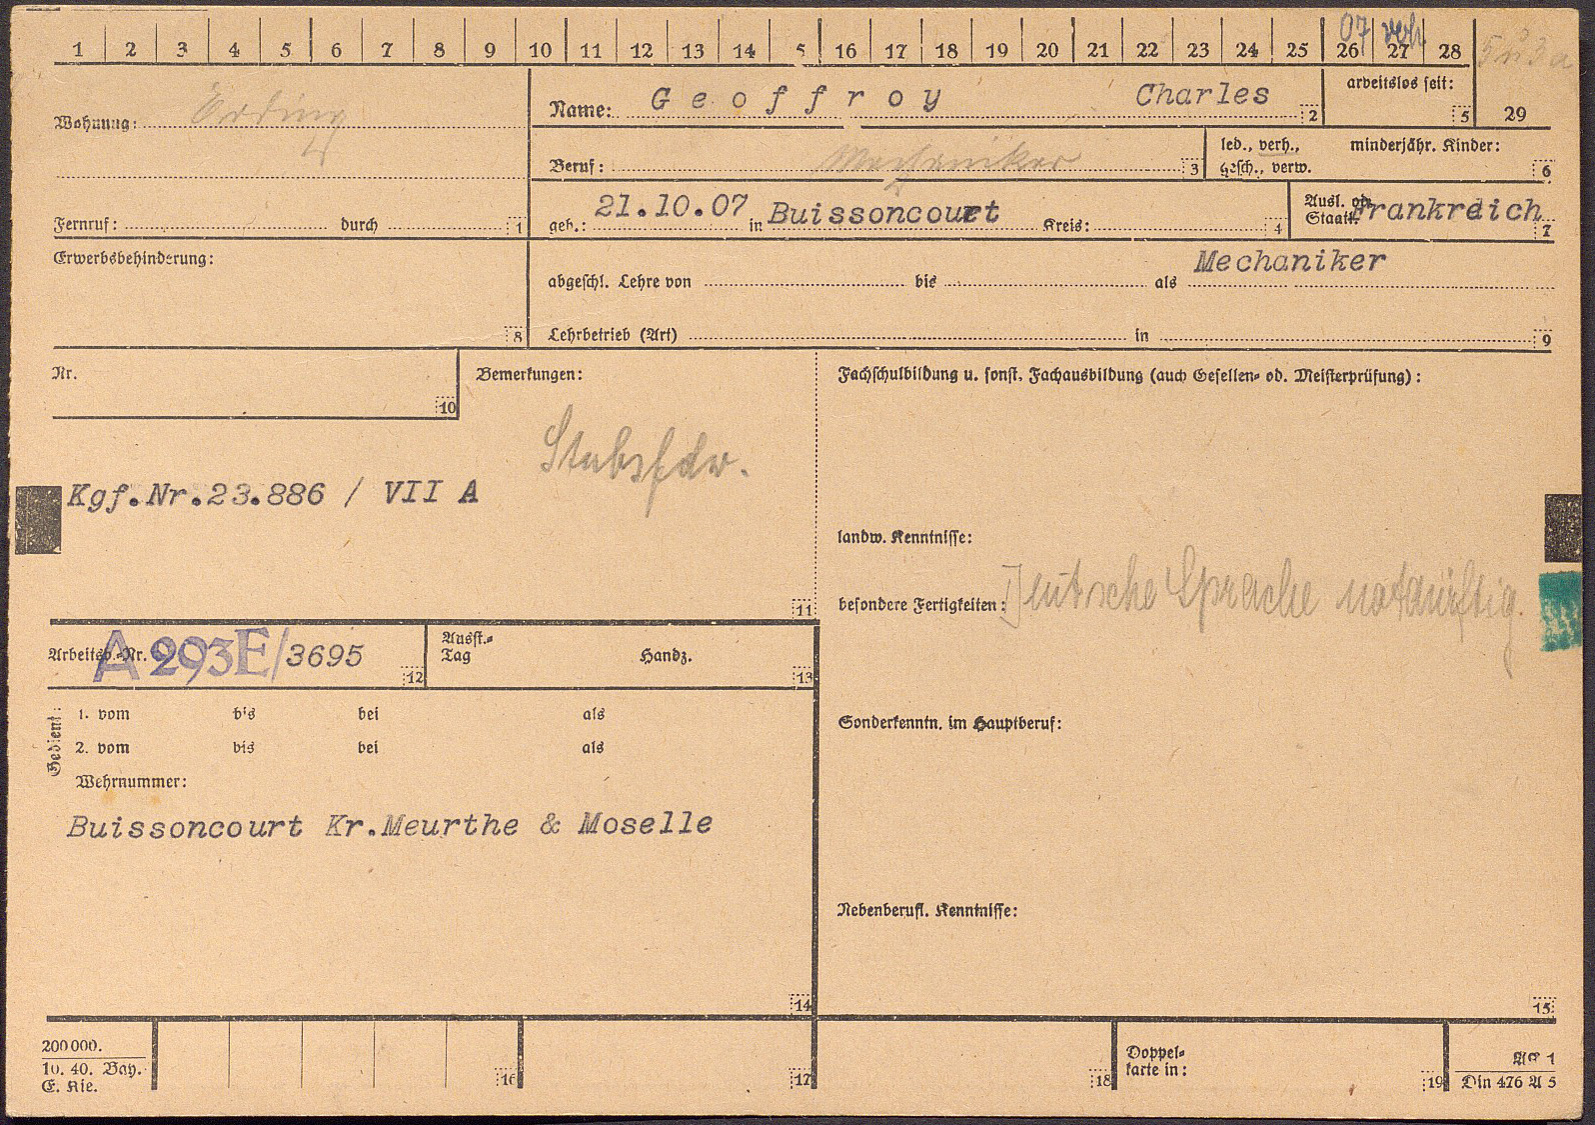 1 2 3 4 5 6 7 8 9 10 11 12 13 14 5 16 17 18 19 20 21 22 23 24 25 26 27 28
07 verh
5u3a
Wohnung: Erding
Name: Geoffroy Charles 2
arbeitslos seit: 5
29
Beruf: Mechaniker 3
led., verh., minderjähr. Kinder:
gesch., verw. 6
Fernruf: durch 1
geb.: 21.10.07 in Buissoncourt Kreis: 4
Ausl. od. Staatl. Frankreich 7
Erwerbsbehinderung: 8
abgeschl. Lehre von bis als Mechaniker
Lehrbetrieb (Art) in 9
Nr. 10
Bemerkungen:
Stabsfdw.
Kgf.Nr.23.886 / VII A
11
Fachschulbildung u. sonst. Fachausbildung (auch Gesellen- od. Meisterprüfung):
landw. Kenntnisse:
besondere Fertigkeiten: Deutsche Sprache notdürftig.
Arbeitsb.-Nr. A 293E/3695 12
Ausst.-
Tag Handz. 13
Gedient:
1. vom bis bei als
2. vom bis bei als
Wehrnummer:
Buissoncourt Kr.Meurthe & Moselle
14
Sonderkenntn. im Hauptberuf:
Nebenberufl. Kenntnisse:
15
200000.
10. 40. Bay.
E. Kie.
16 17 18
Doppel-
karte in: 19
Din 476 A 5